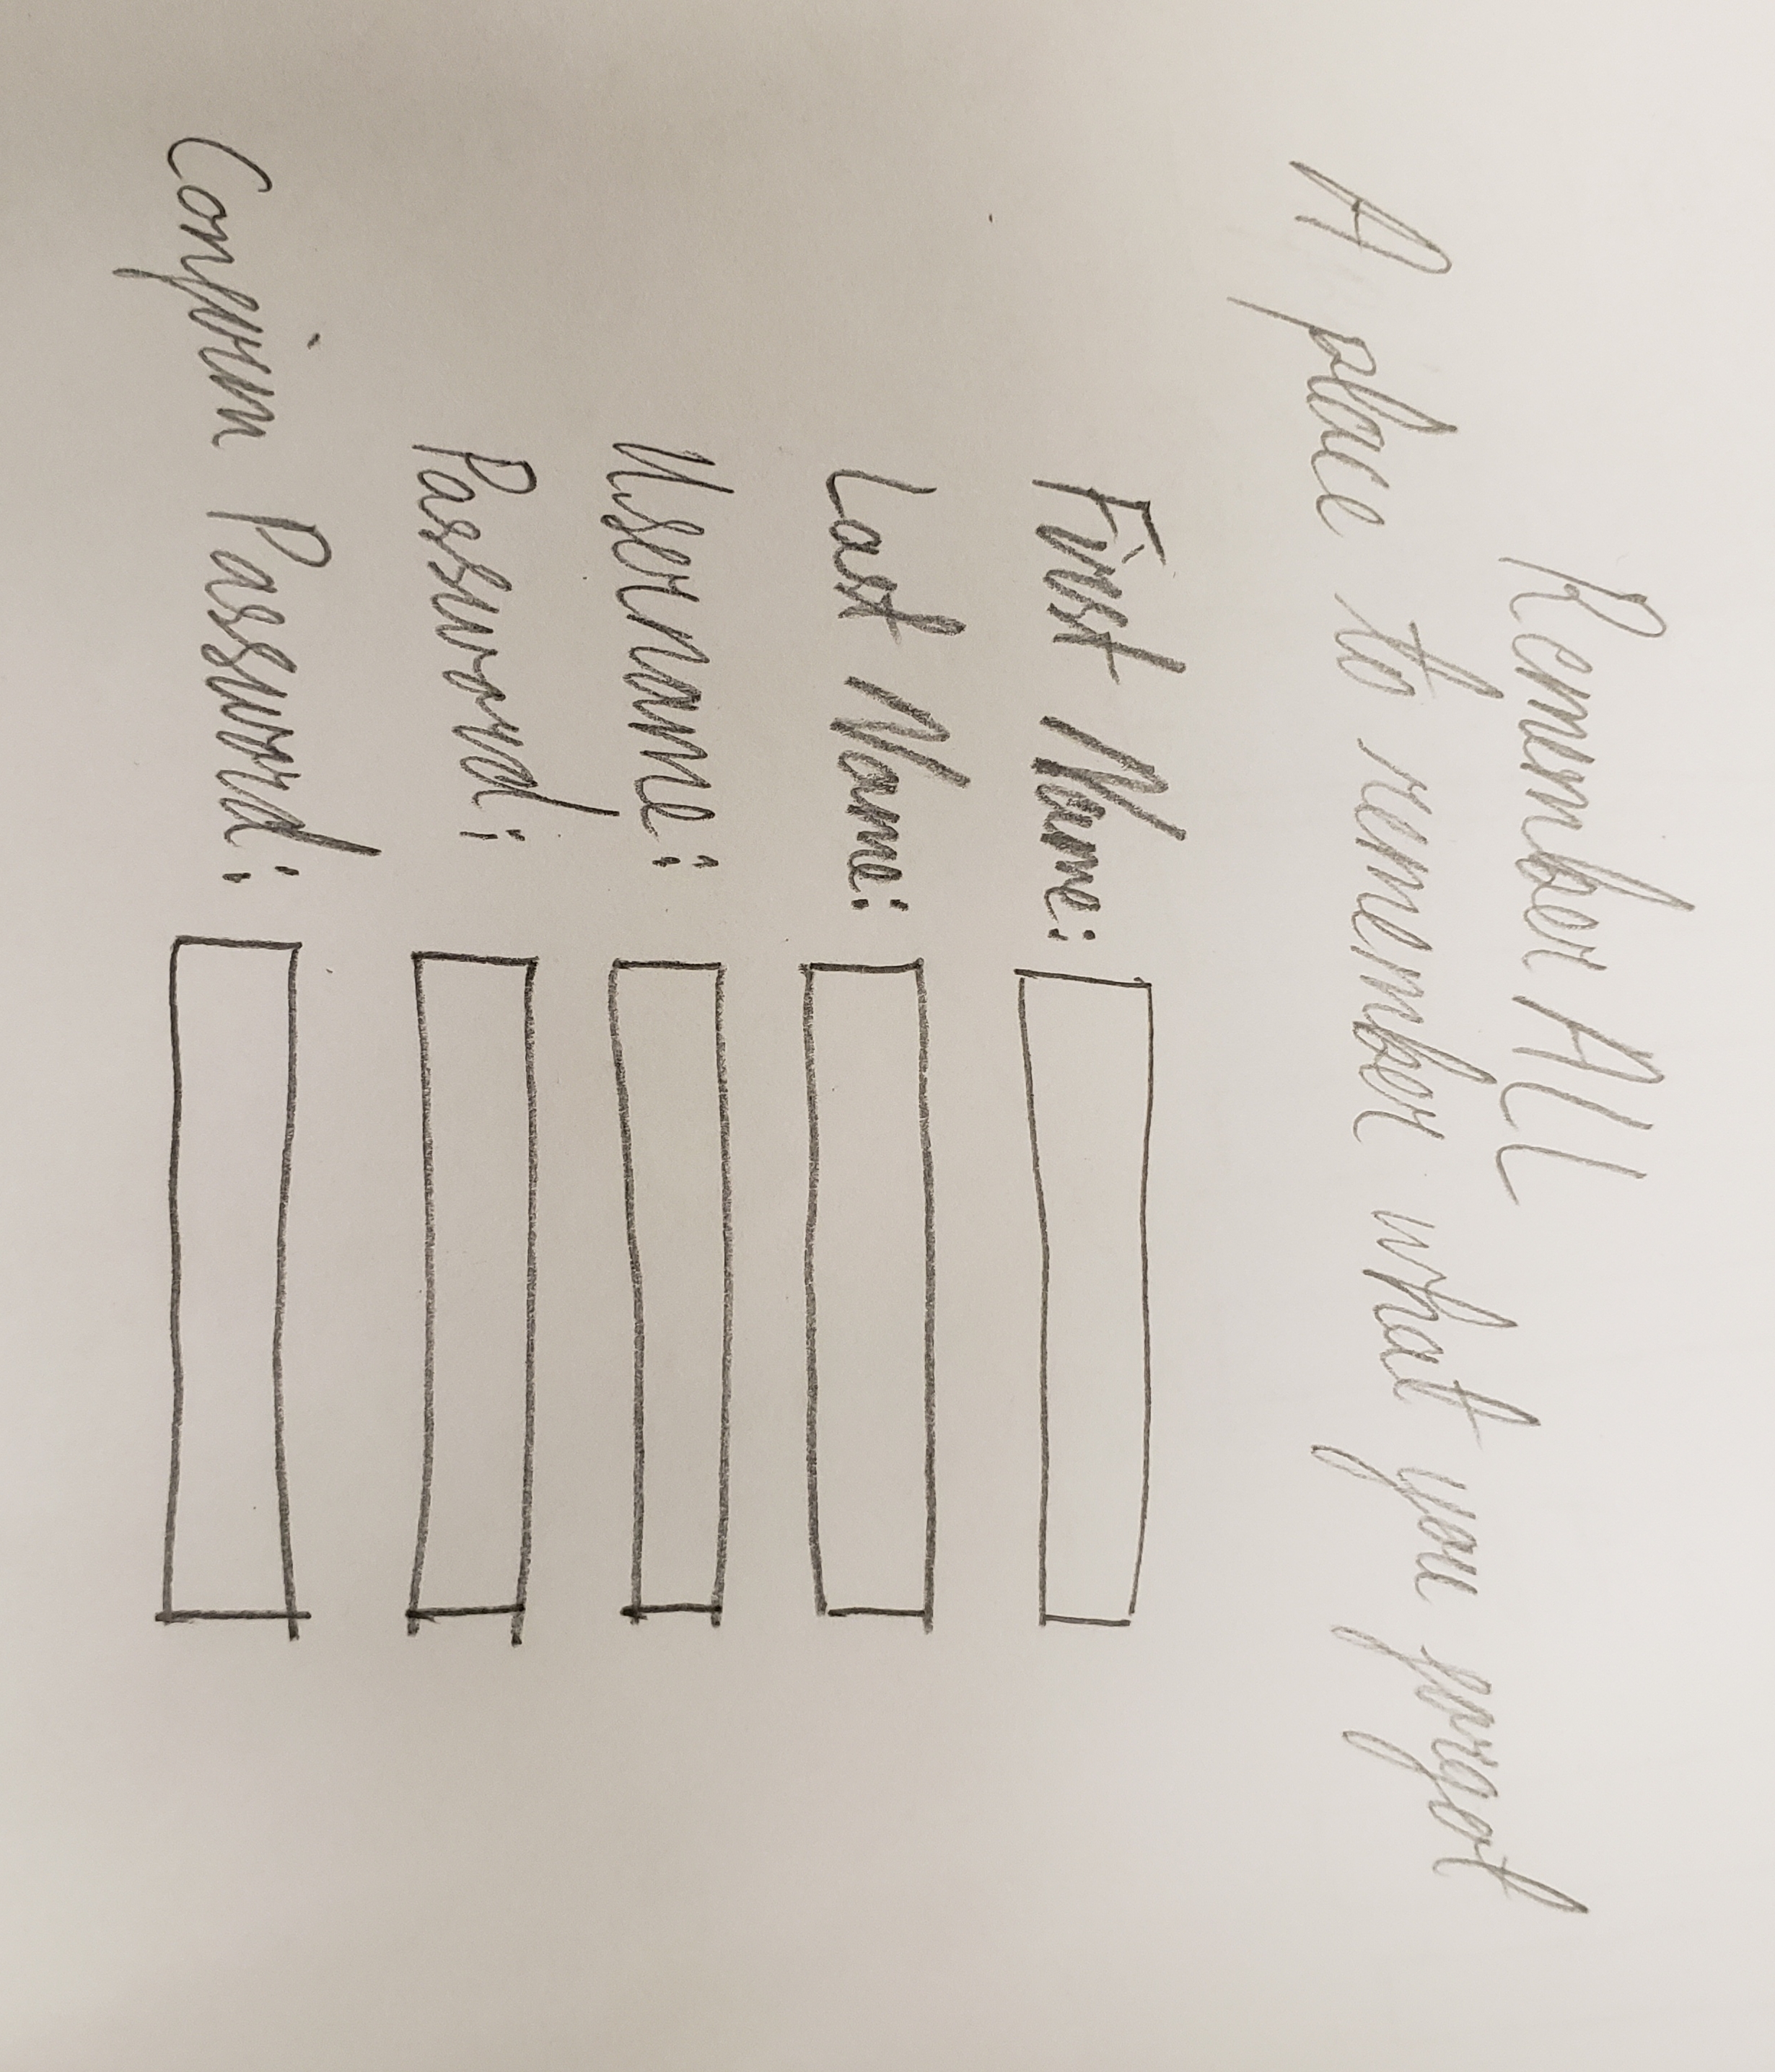 Remember All
A place to remember what you forgot
First Name:
Last Name:
Username:
Password:
Confirm Password: